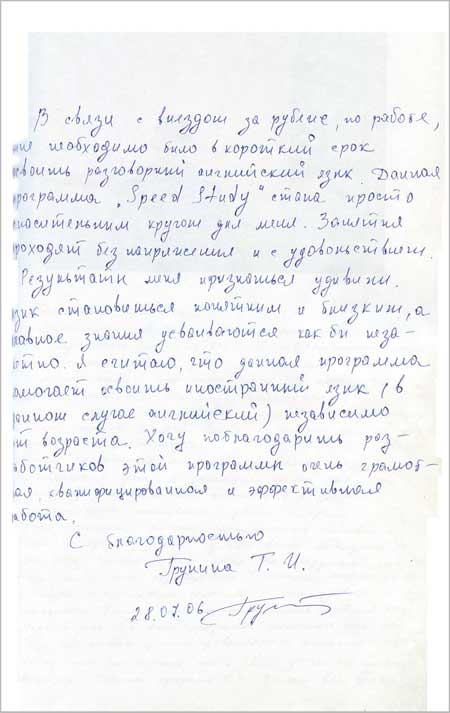 В связи с выездом за рубеж, по работе,
мне необходимо было в короткий срок
освоить разговорный английский язык. Данная
программа „Speed Study" стала просто
спасительным кругом для меня. Занятия
проходят без напряжения и с удовольствием.
Результаты меня признаться удивили.
язык становиться понятным и близким, а
главное знания усваиваются как бы неза-
метно. Я считаю, что данная программа
помогает освоить иностранный язык (в
данном случае английский) независимо
от возраста. Хочу поблагодарить раз-
работчиков этой программы очень грамот-
ная, квалифицированная и эффективная
работа.
С благодарностью
Грунина Т. И.
28.07.06